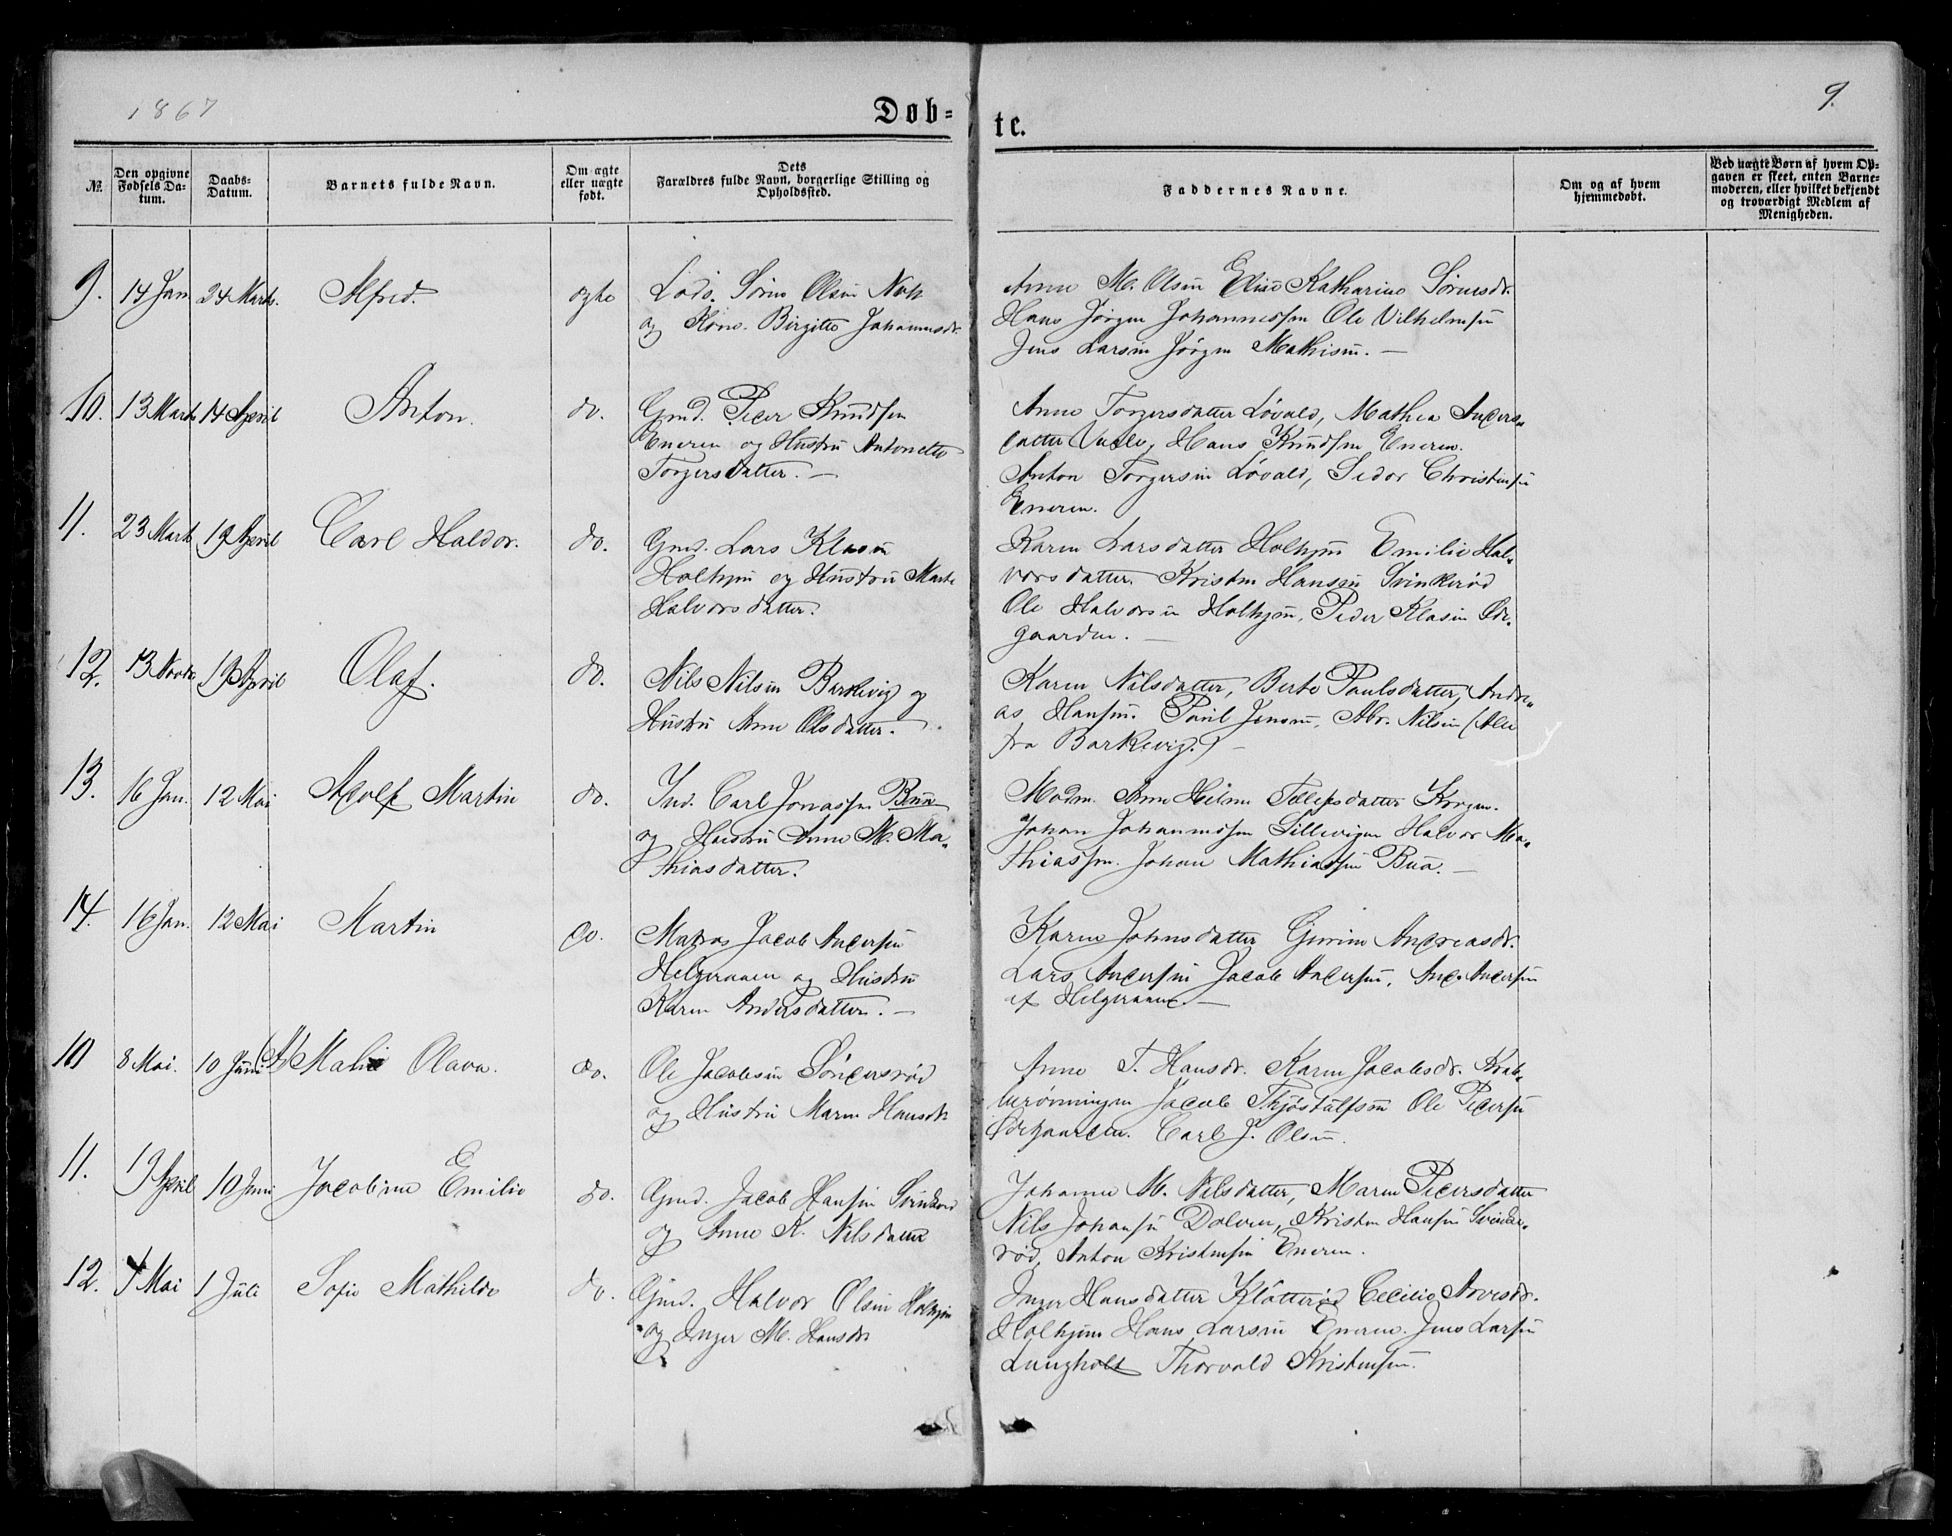 1867
Døb-
te.
9.
№.
Den opgivne
Fødsels Da-
tum.
Daabs-
Datum.
Barnets fulde Navn.
Om ægte
eller uægte
født.
Dets
Forældres fulde Navn, borgerlige Stilling og
Opholdssted.
Faddernes Navne.
Om og af hvem
hjemmedøbt.
Ved uægte Børn af hvem Op-
gaven er skeet, enten Barne-
moderen, eller hvilket bekjendt
og troværdigt Medlem af
Menigheden.
9. 14 Jan. 24 Marts. Alfred. ægte
Lods. Søren Olsen
og Kone. Birgitte Johannesdr.
Anne M. Olsen Elise Katharine Sørensdr.
Hans Jørgen Johannessen Ole Vilhelmsen
Jens Larsen Jørgen Mathisen. —
10. 13 Marts 14 April Anton. do.
Gmd. Peder Knudsen
Eneren og Hustru Antonette
Torgersdatter. —
Anne Torgersdatter Løvald, Mathea Anders-
datter Hans Knudsen Eneren.
Anton Torgersen Løvald, Sedor Christensen
Eneren.
11. 23 Marts 19 April Carl Haldor. do.
Gmd. Lars Klasen
Holhjem og Hustru Marte
Halvorsdatter.
Karen Larsdatter Holhjem Emilie Hal-
vorsdatter. Kristen Hansen Svinkerød
Ole Halvorsen Holhjem, Peder Klasen Øde-
gaarden. —
12. 13 Novbr 19 April Olaf. do.
Nils Nilsen Barkevig og
Hustru Anne Olsdatter.
Karen Nilsdatter, Berte Paulsdatter, Andre-
as Hansen. Paul Jensen, Abr. Nilsen (Alle
fra Barkevig.) —
13. 16 Jan. 12 Mai Adolf Martin do.
Ind. Carl Jonassen Bua
og Hustru Anne M. Ma-
thiasdatter.
Madm. Anne Helene Tellefsdatter
Johan Johannessen Lillevigen Halvor Ma-
thiassen. Johan Mathiassen Bua. —
14. 16 Jan. 12 Mai Martin do.
Matros Jacob Andersen
Helgeraaen og Hustru
Karen Andersdatter. —
Karen Johnsdatter Gurine Andreasdr.
Lars Andersen Jacob Andersen, And. Andersen
af Helgeraaen. —
10 8 Mai. 10 Juni Malie Olava. do.
Ole Jacobsen Søndersrød
og Hustru Maren Hansdr
Anne T. Hansdr. Karen Jacobsdr. Krab-
berønningen Jacob Thjøstulfsen Ole Pedersen
Ødegaarden. Carl J. Olsen.
11. 19 April 10 Juni Jacobine Emilie do.
Gmd. Jacob Hansen Svinkerød
og Anne K. Nilsdatter
Johanne M. Nilsdatter, Maren Pedersdatter
Nils Johansen Dolven, Kristen Hansen Svinke-
rød, Anton Kristensen Eneren.
12. 4 Mai 1 Juli Sofie Mathilde do.
Gmd. Halvor Olsen Holhjem
og Inger M. Hansdr
Inger Hansdatter Klåtterød Cecilie Arvesdr.
Holhjem Hans Larsen Eneren. Jens Larsen
Langholt Thorvald Kristensen.